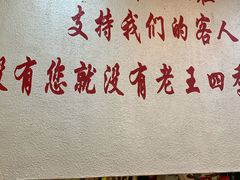 支持我们的客人
没有您就没有老王四季